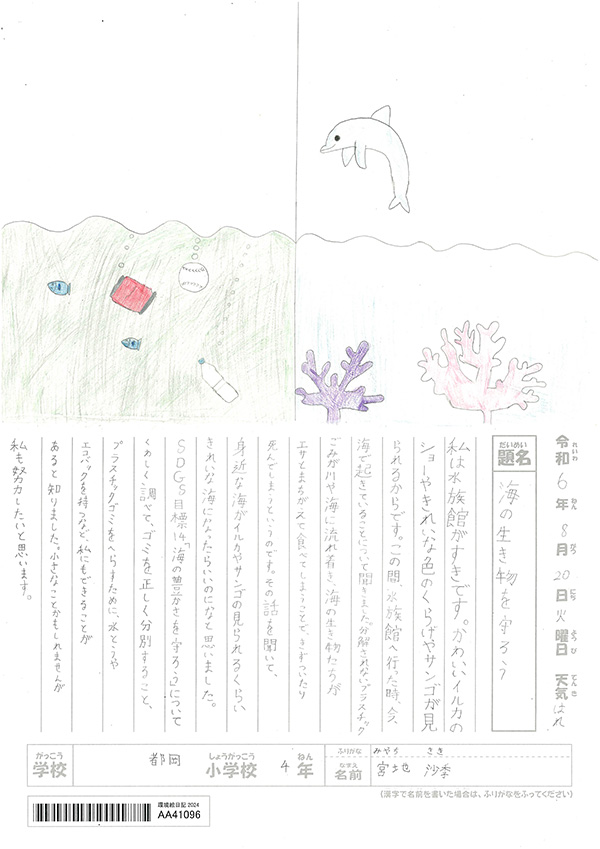 令和6年8月20日火曜日 天気 はれ
れいわ ねん がつ にち ようび てんき
だいめい
題名 海の生き物を守ろう
私は水族館がすきです。かわいいイルカの
ショーやきれいな色のくらげやサンゴが見
られるからです。この間、水族館へ行った時、今、
海で起きていることについて聞きました。分解されないプラスチック
ごみが川や海に流れ着き、海の生き物たちが
エサとまちがえて食べてしまうことで、きずついたり
死んでしまうというのです。その話を聞いて、
身近な海がイルカやサンゴの見られるくらい
きれいな海になったらいいのになと思いました。
SDGS目標14「海の豊かさを守ろう」について
くわしく調べて、ゴミを正しく分別すること、
プラスチックゴミをへらすために、水とうや
エコバックを持つなど、私にもできることが
あると知りました。小さなことかもしれませんが
私も努力したいと思います。
がっこう しょうがっこう ねん ふりがな みやち さき
学校 都岡 小学校 4年 なまえ 名前 宮地 沙季
(漢字で名前を書いた場合は、ふりがなをふってください)
環境絵日記2024
AA41096